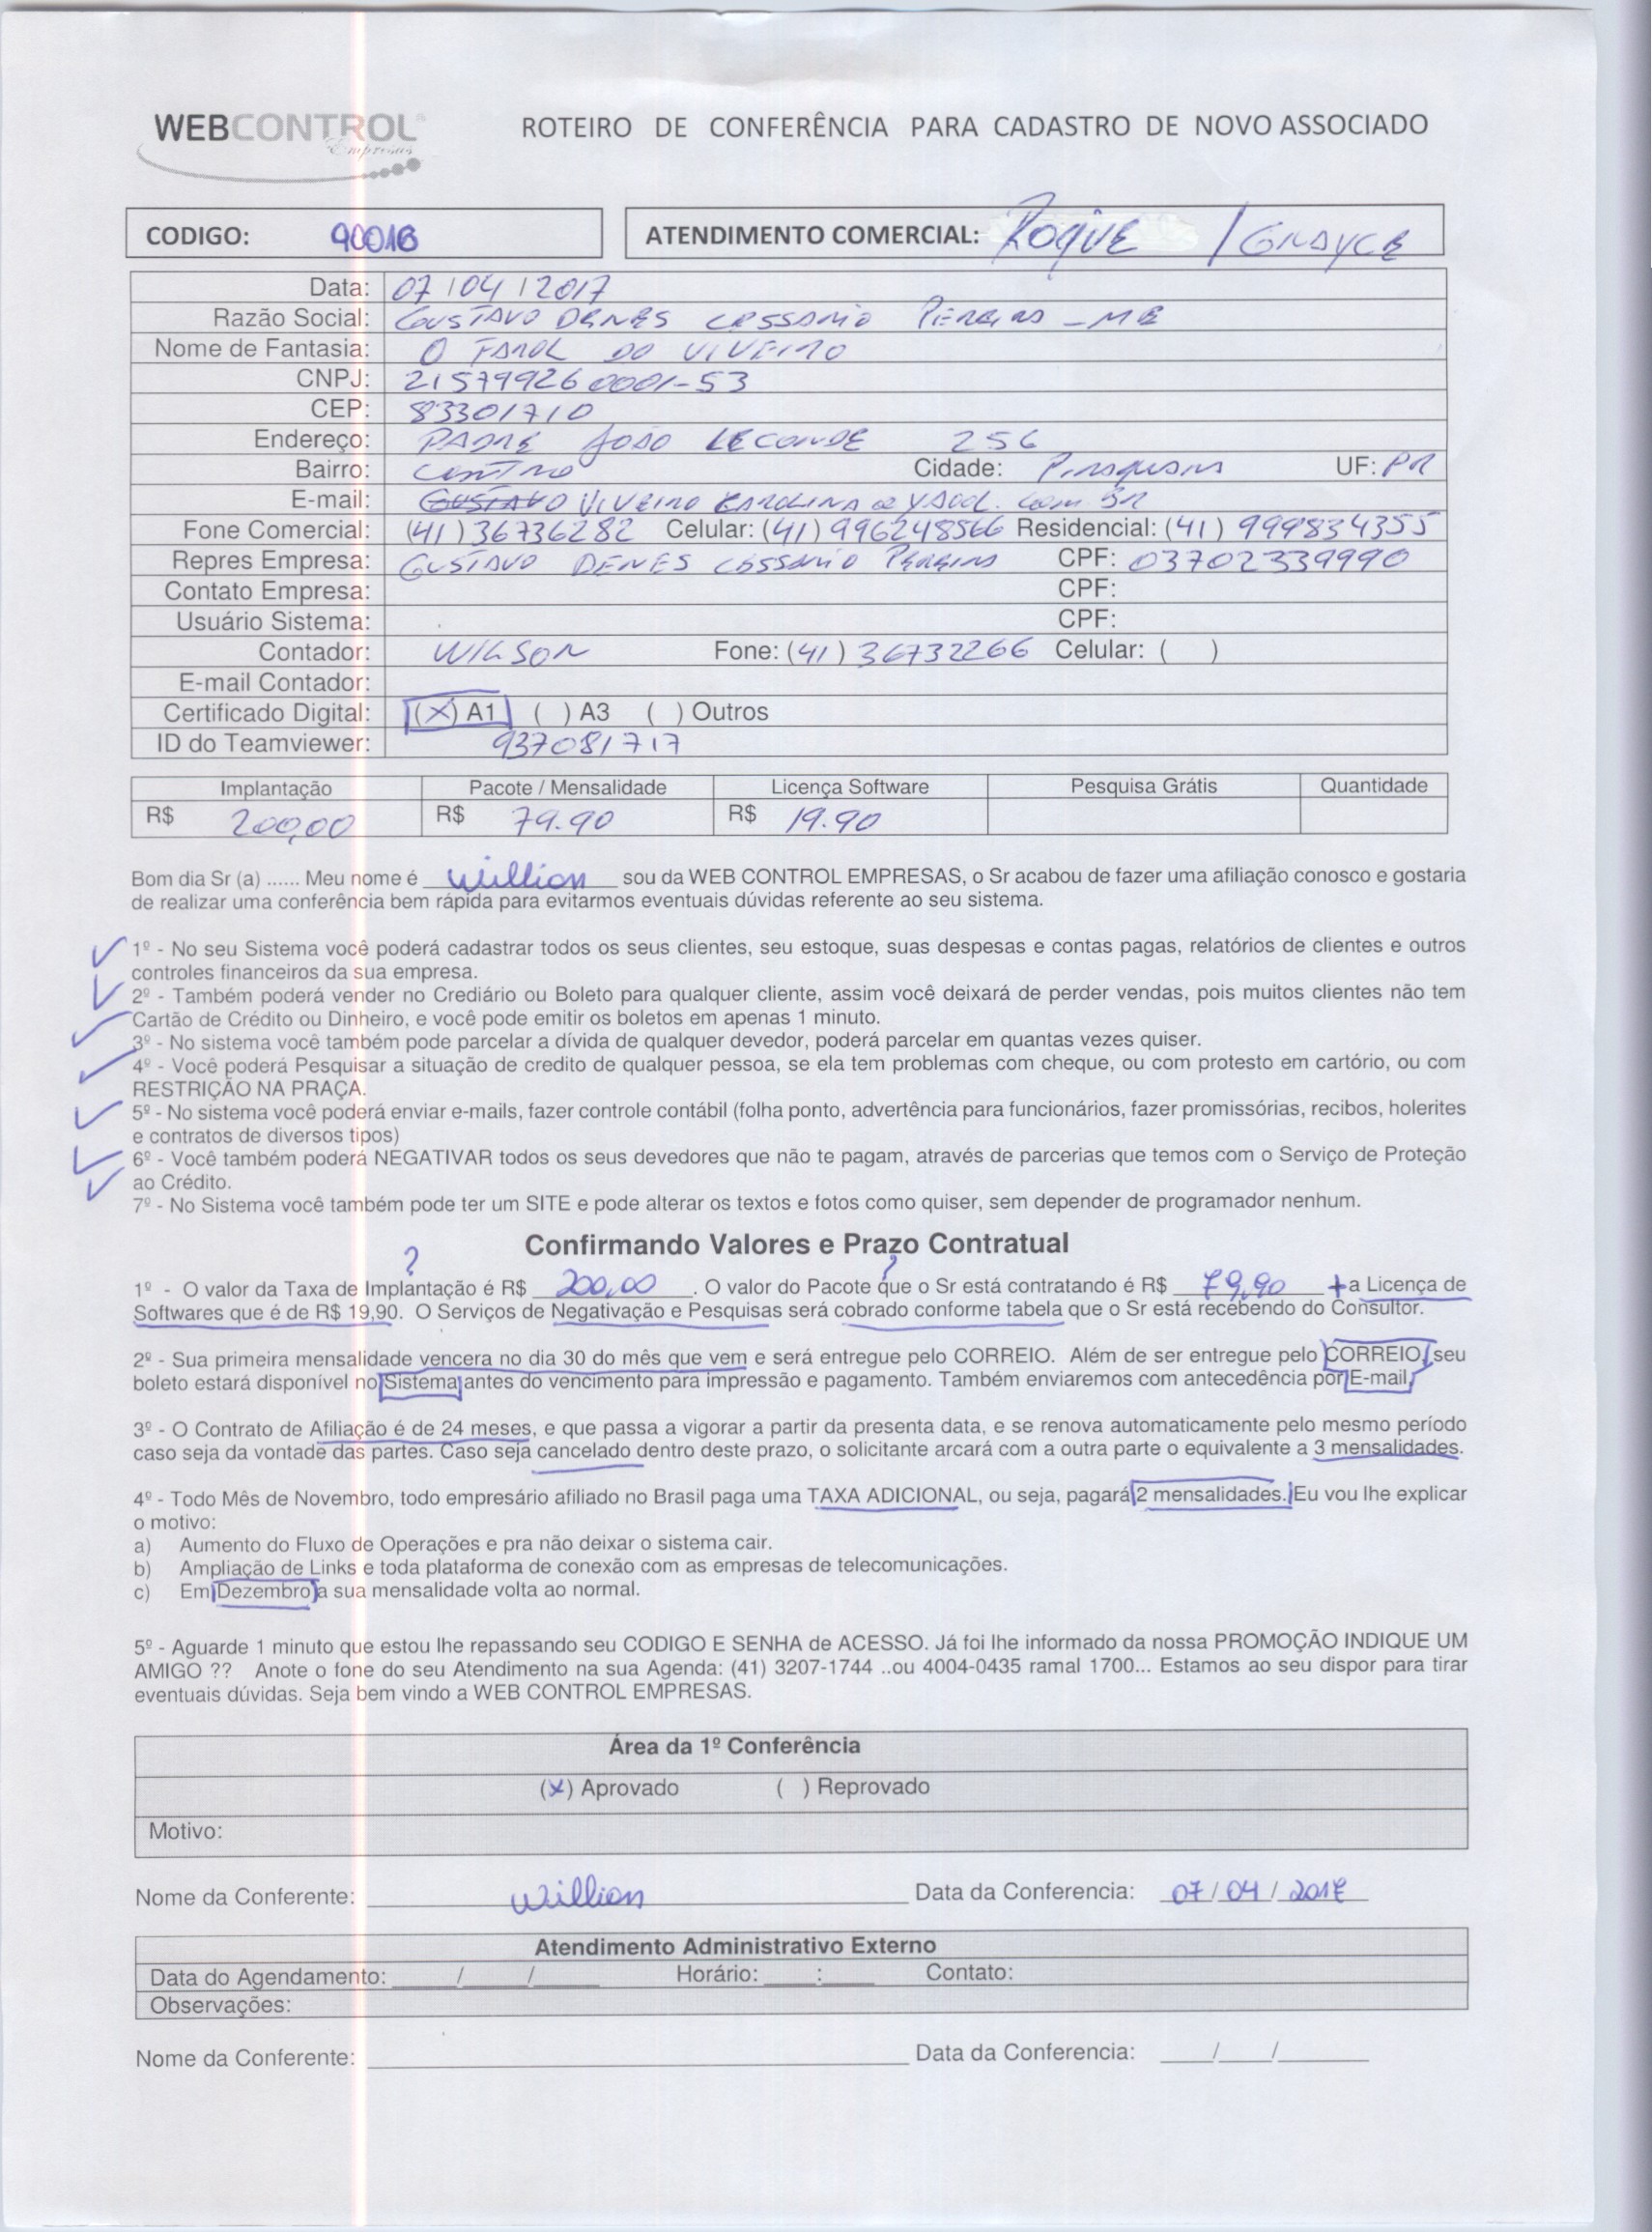 WEBCONTROL
Empresas
ROTEIRO DE CONFERÊNCIA PARA CADASTRO DE NOVO ASSOCIADO
CODIGO: 90016
ATENDIMENTO COMERCIAL: Roque / GRAYCE
Data: 07/04/2017
Razão Social: GUSTAVO DENES CESSARIO PEREIRA - ME
Nome de Fantasia: O FAROL DO VIVEIRO
CNPJ: 215799260001-53
CEP: 83301710
Endereço: PADRE JOÃO LECONDE 256
Bairro: CENTRO Cidade: Piraquara UF: PR
E-mail: VIVEIRO KAROLINA @ com BR
Fone Comercial: (41) 36736282 Celular: (41) 996248566 Residencial: (41) 999834355
Repres Empresa: GUSTAVO DENES CESSARIO PEREIRA CPF: 03702339990
Contato Empresa: CPF:
Usuário Sistema: CPF:
Contador: WILSON Fone: (41) 36732266 Celular: ( )
E-mail Contador:
Certificado Digital: (X) A1 ( ) A3 ( ) Outros
ID do Teamviewer: 937081717
Implantação Pacote / Mensalidade Licença Software Pesquisa Grátis Quantidade
R$ 200,00 R$ 79.90 R$ 19.90
Bom dia Sr (a) ...... Meu nome é Willian sou da WEB CONTROL EMPRESAS, o Sr acabou de fazer uma afiliação conosco e gostaria
de realizar uma conferência bem rápida para evitarmos eventuais dúvidas referente ao seu sistema.
1º - No seu Sistema você poderá cadastrar todos os seus clientes, seu estoque, suas despesas e contas pagas, relatórios de clientes e outros
controles financeiros da sua empresa.
2º - Também poderá vender no Crediário ou Boleto para qualquer cliente, assim você deixará de perder vendas, pois muitos clientes não tem
Cartão de Crédito ou Dinheiro, e você pode emitir os boletos em apenas 1 minuto.
3º - No sistema você também pode parcelar a dívida de qualquer devedor, poderá parcelar em quantas vezes quiser.
4º - Você poderá Pesquisar a situação de credito de qualquer pessoa, se ela tem problemas com cheque, ou com protesto em cartório, ou com
RESTRIÇÃO NA PRAÇA.
5º - No sistema você poderá enviar e-mails, fazer controle contábil (folha ponto, advertência para funcionários, fazer promissórias, recibos, holerites
e contratos de diversos tipos)
6º - Você também poderá NEGATIVAR todos os seus devedores que não te pagam, através de parcerias que temos com o Serviço de Proteção
ao Crédito.
7º - No Sistema você também pode ter um SITE e pode alterar os textos e fotos como quiser, sem depender de programador nenhum.
Confirmando Valores e Prazo Contratual
? ?
1º - O valor da Taxa de Implantação é R$ 200,00. O valor do Pacote que o Sr está contratando é R$ 79,90 + a Licença de
Softwares que é de R$ 19,90. O Serviços de Negativação e Pesquisas será cobrado conforme tabela que o Sr está recebendo do Consultor.
2º - Sua primeira mensalidade vencera no dia 30 do mês que vem e será entregue pelo CORREIO. Além de ser entregue pelo CORREIO, seu
boleto estará disponível no Sistema antes do vencimento para impressão e pagamento. Também enviaremos com antecedência por E-mail.
3º - O Contrato de Afiliação é de 24 meses, e que passa a vigorar a partir da presenta data, e se renova automaticamente pelo mesmo período
caso seja da vontade das partes. Caso seja cancelado dentro deste prazo, o solicitante arcará com a outra parte o equivalente a 3 mensalidades.
4º - Todo Mês de Novembro, todo empresário afiliado no Brasil paga uma TAXA ADICIONAL, ou seja, pagará 2 mensalidades. Eu vou lhe explicar
o motivo:
a) Aumento do Fluxo de Operações e pra não deixar o sistema cair.
b) Ampliação de Links e toda plataforma de conexão com as empresas de telecomunicações.
c) Em Dezembro a sua mensalidade volta ao normal.
5º - Aguarde 1 minuto que estou lhe repassando seu CODIGO E SENHA de ACESSO. Já foi lhe informado da nossa PROMOÇÃO INDIQUE UM
AMIGO ?? Anote o fone do seu Atendimento na sua Agenda: (41) 3207-1744 ..ou 4004-0435 ramal 1700... Estamos ao seu dispor para tirar
eventuais dúvidas. Seja bem vindo a WEB CONTROL EMPRESAS.
Área da 1º Conferência
(X) Aprovado ( ) Reprovado
Motivo:
Nome da Conferente: Willian Data da Conferencia: 07/04/2017
Atendimento Administrativo Externo
Data do Agendamento: / / Horário: : Contato:
Observações:
Nome da Conferente: Data da Conferencia: / /